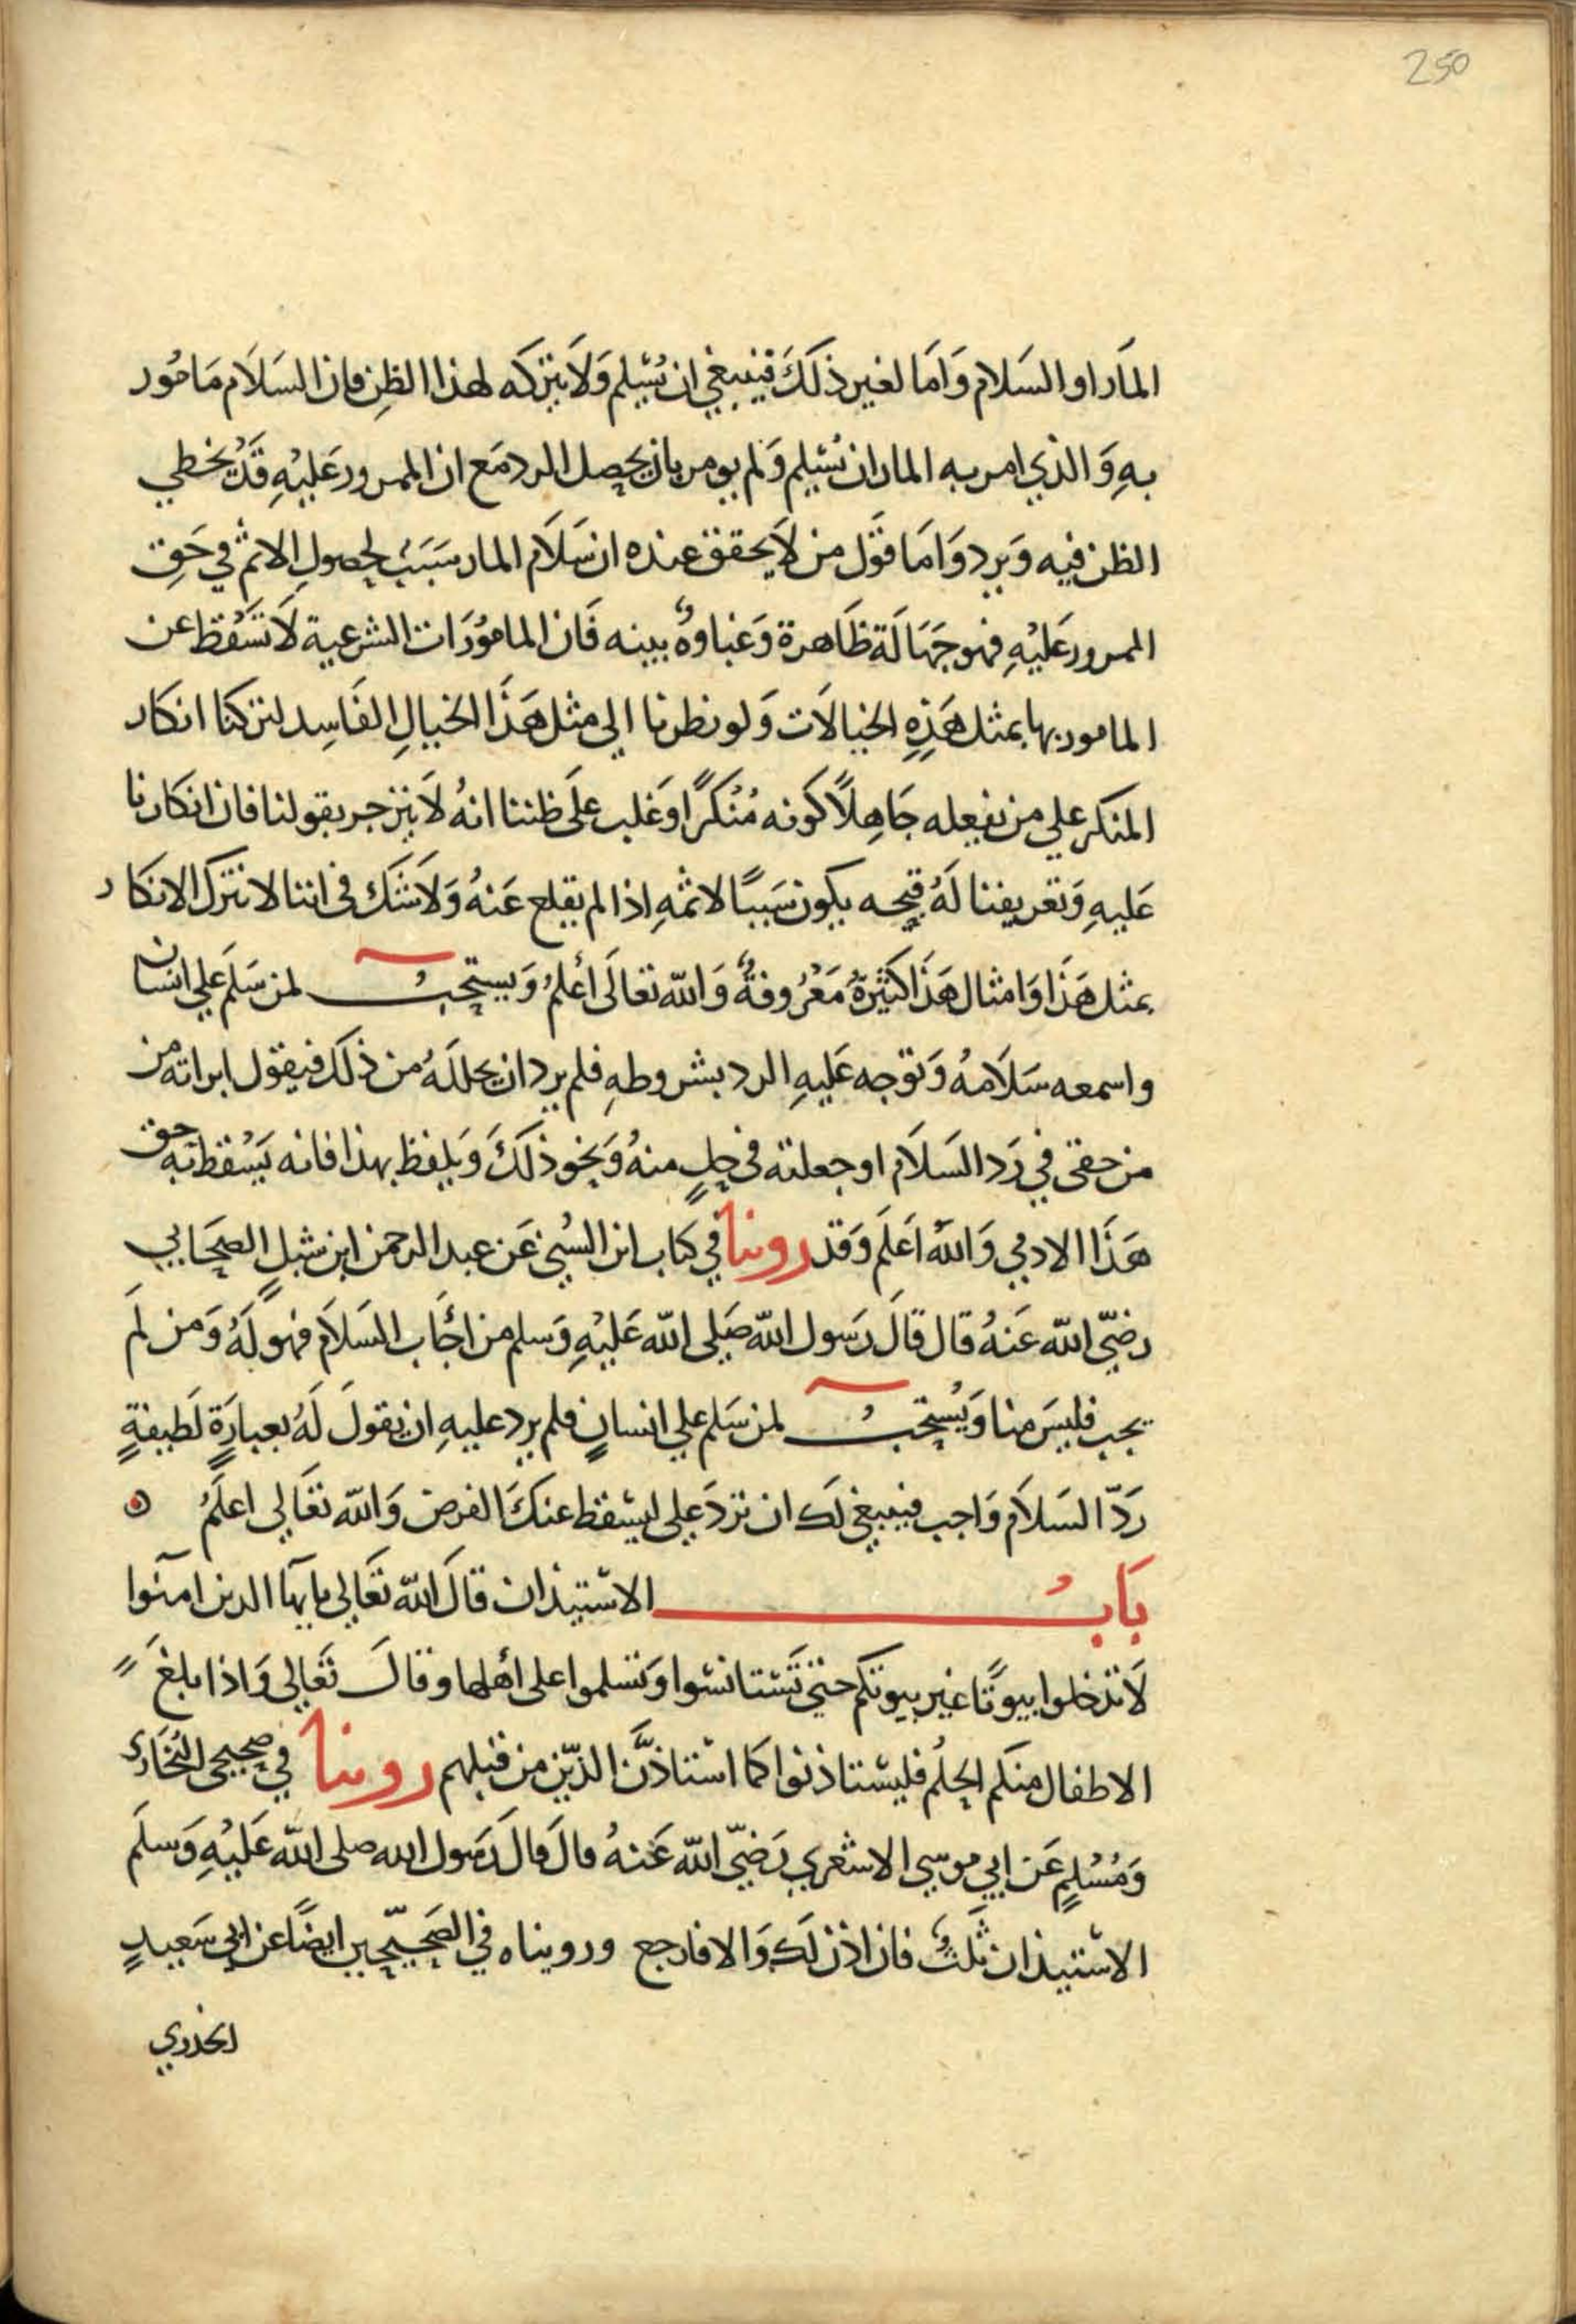 250
المَار او السَلام وَامَا لغير ذلكَ فينبغي ان يُسَلم وَلَا يتركه لهذا الظنِ فان السَلَام مَامُور
بهِ وَالذي امر به المار ان يسَلم وَلم يومر بان يحصل الرد مَع ان الممرور عَليْهِ قَدْ يخطي
الظن فيه وَيرد وَامَا قَول من لَا يحقق عنده ان سَلَام المار سَبَبٌ لحصولِ الاثم في حَقِ
الممرور عَليْهِ فهو جَهَالَة ظَاهرة وَغباوةٌ بينه فَان المامُورَات الشرعية لَا تَسْقط عن
المامور بها بمثل هَذِهِ الخيالَات وَلو نظرنا الى مثل هَذَا الخيالِ الفَاسِد لتركنا انكار
المنكر علي من يفعله جَاهِلًا كَونه مُنْكَرًا وَغلب علَى ظننا انهُ لَا ينزجر بقولنا فان انكارنا
عَليهِ وَتعريفنا لَهُ قبحه يكون سَببًا لاثمهِ اذا لم يقلع عَنهُ وَلَا شَك في اننا لا نترك الانكار
بمثل هَذَا وَامثال هَذَا كثيرَةٌ مَعْرُوفةٌ وَالله تعالَى أعْلمُ وَيستحبُ لمن سَلَم علي انسان
واسمعه سَلَامهُ وَتوجه عَليهِ الرد بشروطهِ فلم يرد ان يحللَهُ من ذلكَ فيقول ابراته من
من حقي في رَد السَلَام او جعلته في حِلٍ منهُ وَنحو ذلكَ وَيلفظ بهذا فانه يَسْقط به حق
هَذَا الادمي وَاللهُ اَعَلَم وَقد روينا في كتاب ابن السُني عَن عبد الرحمن ابن شبلٍ الصحَابي
رضيّ الله عَنهُ قال قَالَ رَسول الله صَلى الله عَليْهِ وَسلم من اجَاب السَلَام فهو لَهُ وَمن لَم
يجب فليسَ منا وَيُستحبُ لمن سَلم علي انسانٍ فلم يرد عليهِ ان يقولَ لَهُ بعبارَةٍ لَطيفةٍ
رَدّ السَلَام وَاجب فينبغي لك ان تردَ علي ليسْقط عنكَ الفرض وَالله تعَالي اعلَمُ
بَابُ الاسْتيذان قالَ الله تعَالي يا يها الذين امنوا
لَا تدخلوا بيوتًا غير بيوتكم حتى تَسْتانسُوا وَتسلموا على أهلها وقالَ تعَالي وَاذا بلغَ
الاطفال منكم الحلُم فليسْتاذنوا كما اسْتاذَن الذيّن من قبلهم روينا في صحيحي البُخَاري
وَمُسْلمٍ عَن ابي موسي الاشعري رَضيّ الله عَنهُ قالَ قالَ رَسول الله صلى الله عَليْهِ وَسلَم
الاسْتيذان ثلثٌ فان اذن لك وَالا فارجع ورويناه في الصَحيحّين ايضًا عن ابي سَعيدٍ
الخدري